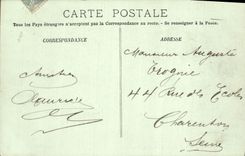 CARTE POSTALE
Tous les Pays étrangers n'acceptent pas la Correspondance au recto. - Se renseigner à la Poste.
CORRESPONDANCE
ADRESSE
Monsieur Auguste
44 Rue des Ecoles
Charenton
Seine